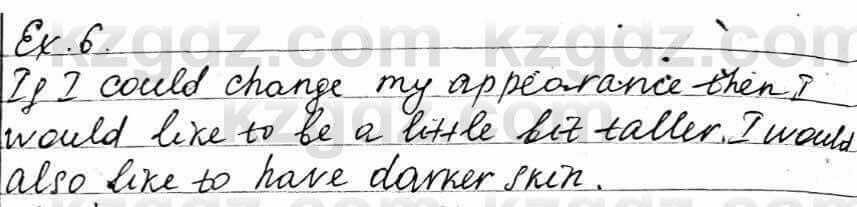 Ex. 6.
If I could change my appearance then I
would like to be a little bit taller. I would
also like to have darker skin.
kzgdz.com kzgdz.com
kzgdz.com